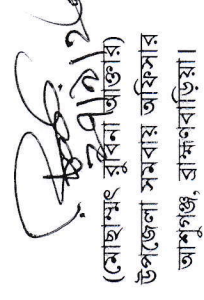 (মোছাম্মৎ রুবিনা আক্তার)
উপজেলা সমবায় অফিসার
আশুগঞ্জ, ব্রাহ্মণবাড়িয়া।